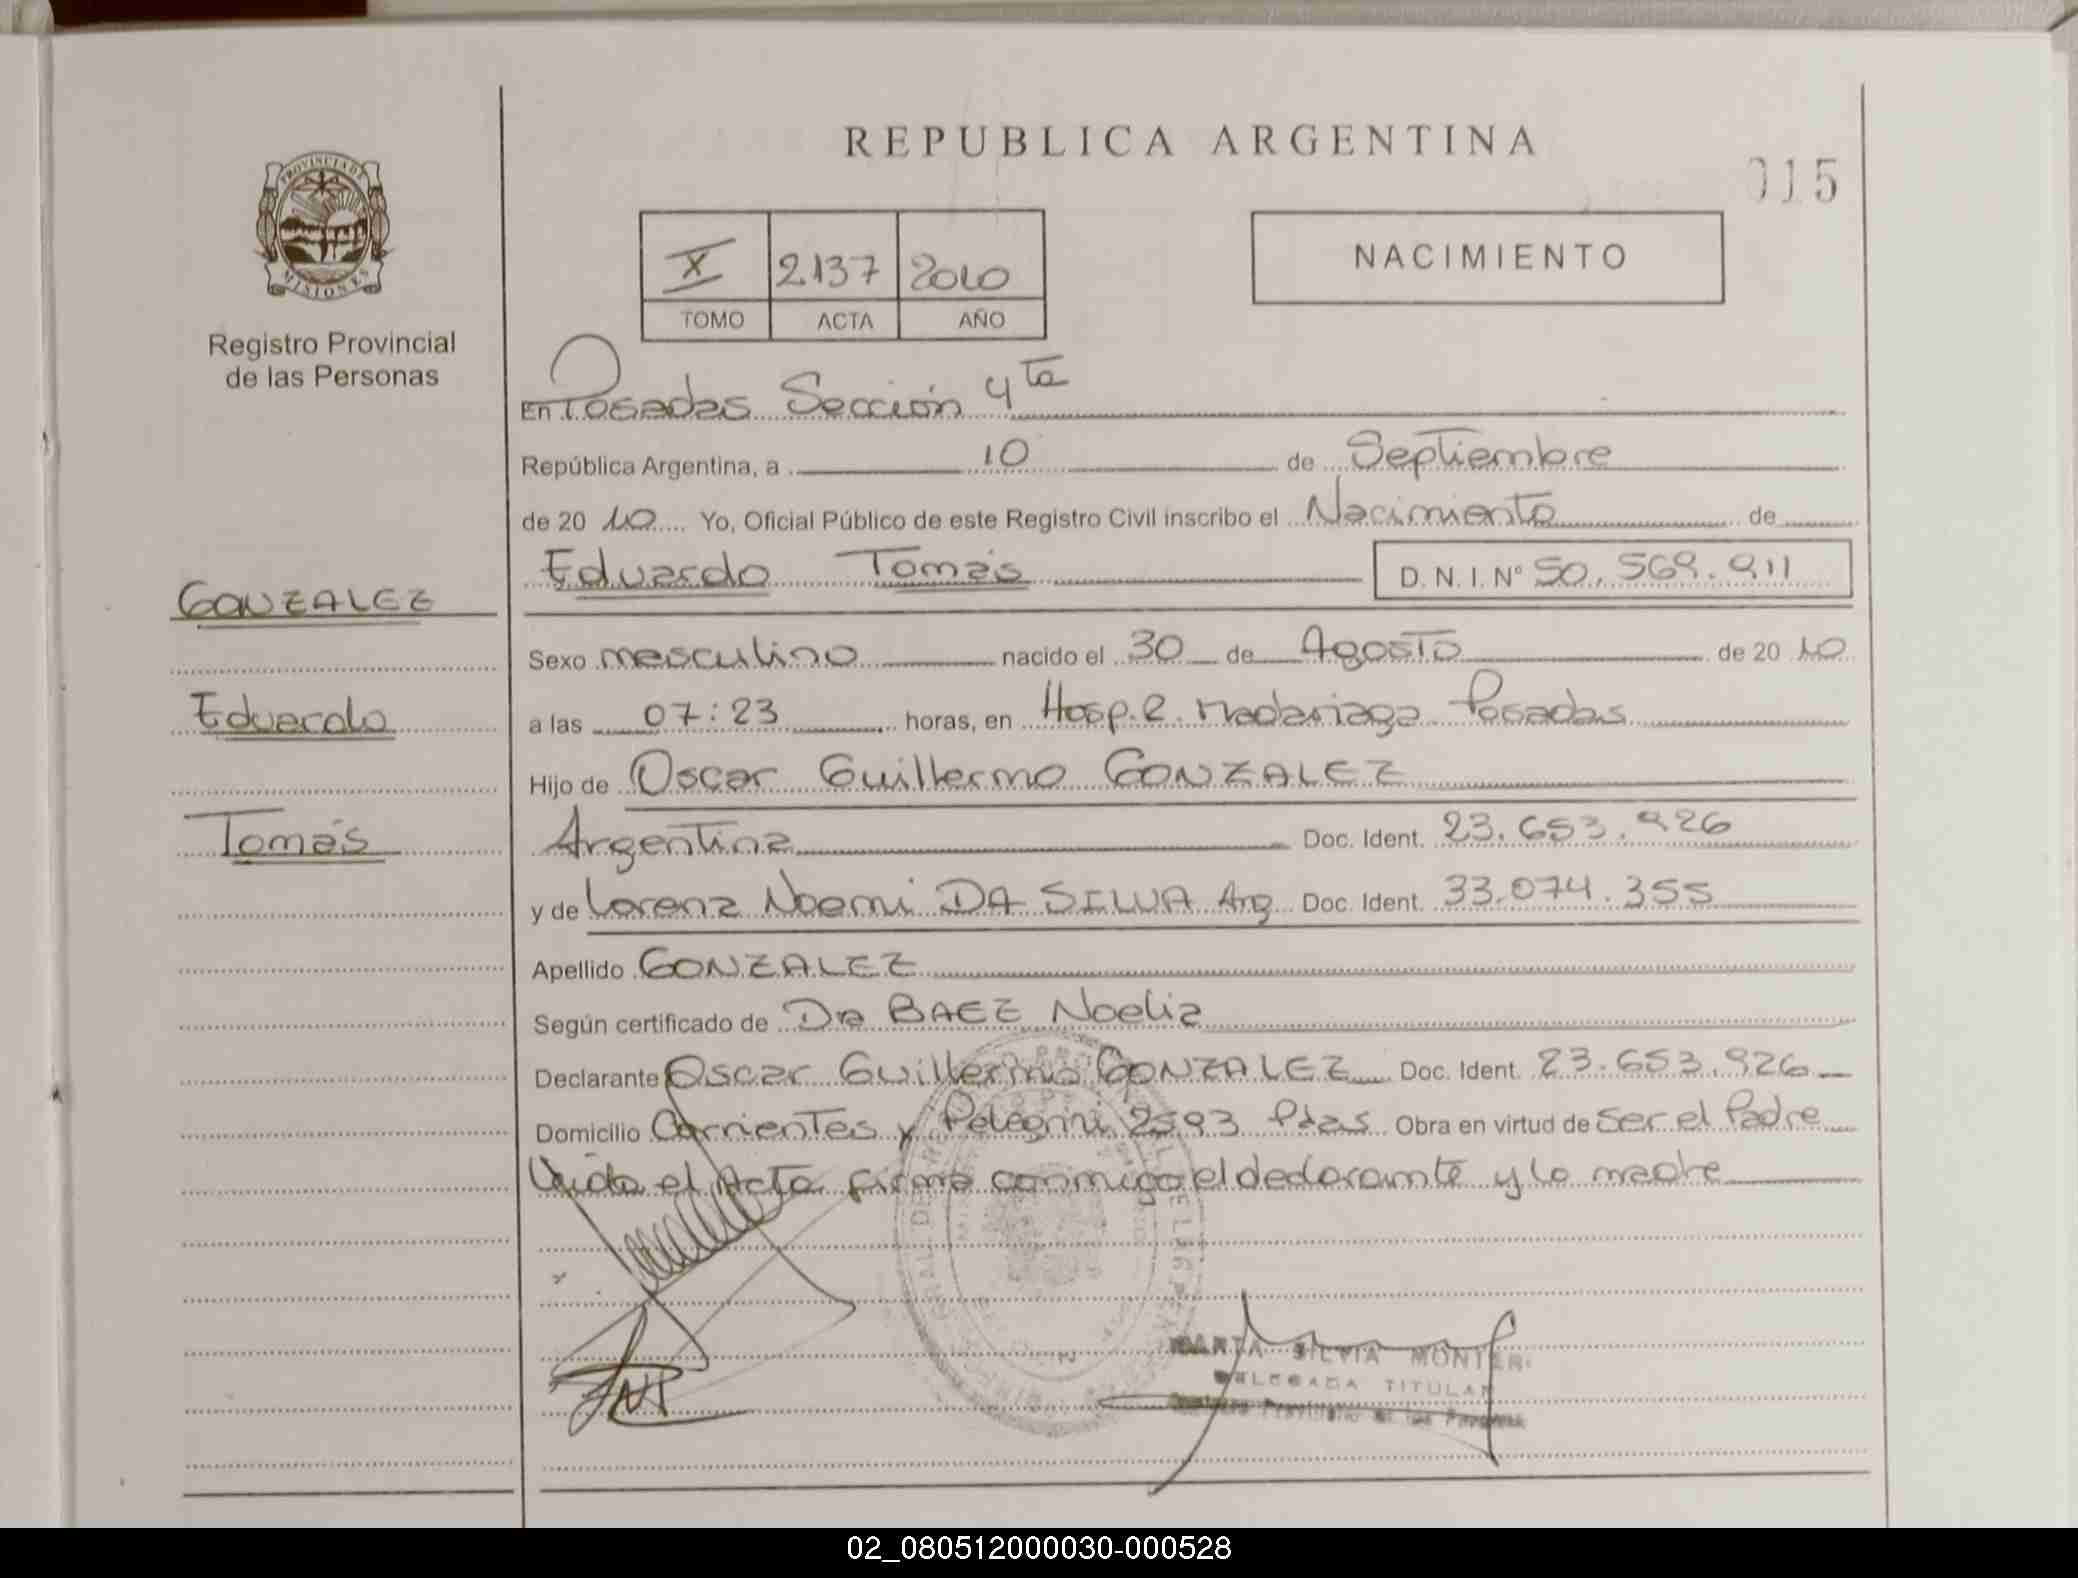 REPUBLICA ARGENTINA
015
PROVINCIA DE
MISIONES
Registro Provincial
de las Personas
X 2137 2010
TOMO ACTA AÑO
NACIMIENTO
En Posadas Sección 4ta
República Argentina, a 10 de Septiembre
de 20 10 Yo, Oficial Público de este Registro Civil inscribo el Nacimiento de
Eduardo Tomás D.N.I. Nº 50.569.911
GONZALEZ
Eduardo
Tomás
Sexo masculino nacido el 30 de Agosto de 20 10
a las 07:23 horas, en Hosp. R. Madariaga Posadas
Hijo de Oscar Guillermo GONZALEZ
Argentina Doc. Ident. 23.653.926
y de Lorena Noemi DA SILVA Arg Doc. Ident. 33.074.355
Apellido GONZALEZ
Según certificado de Dra BAEZ Noelia
Declarante Oscar Guillermo GONZALEZ Doc. Ident. 23.653.926
Domicilio Corrientes y Pelegrini 2593 Pdas Obra en virtud de ser el Padre
Leida el Acta firma conmigo el declarante y la madre
SILVIA
DELEGADA TITULAR
02_080512000030-000528